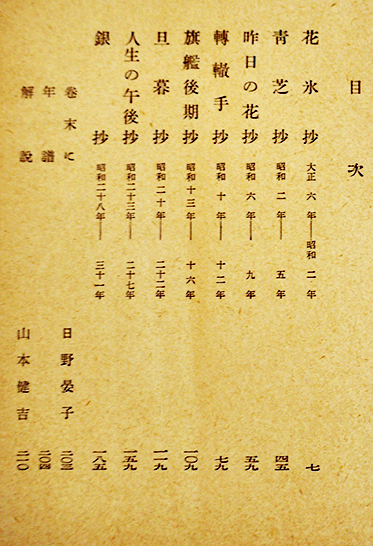 目次
花氷抄 大正六年――昭和二年 七
青芝抄 昭和二年――五年 四五
昨日の花抄 昭和六年――九年 五九
轉轍手抄 昭和十年――十二年 七九
旗艦後期抄 昭和十三年――十六年 一〇九
旦暮抄 昭和二十年――二十二年 一一九
人生の午後抄 昭和二十三年――二十七年 一五九
銀抄 昭和二十八年――三十一年 一八五
卷末に 日野晏子 二〇三
年譜 二〇四
解説 山本健吉 二一〇